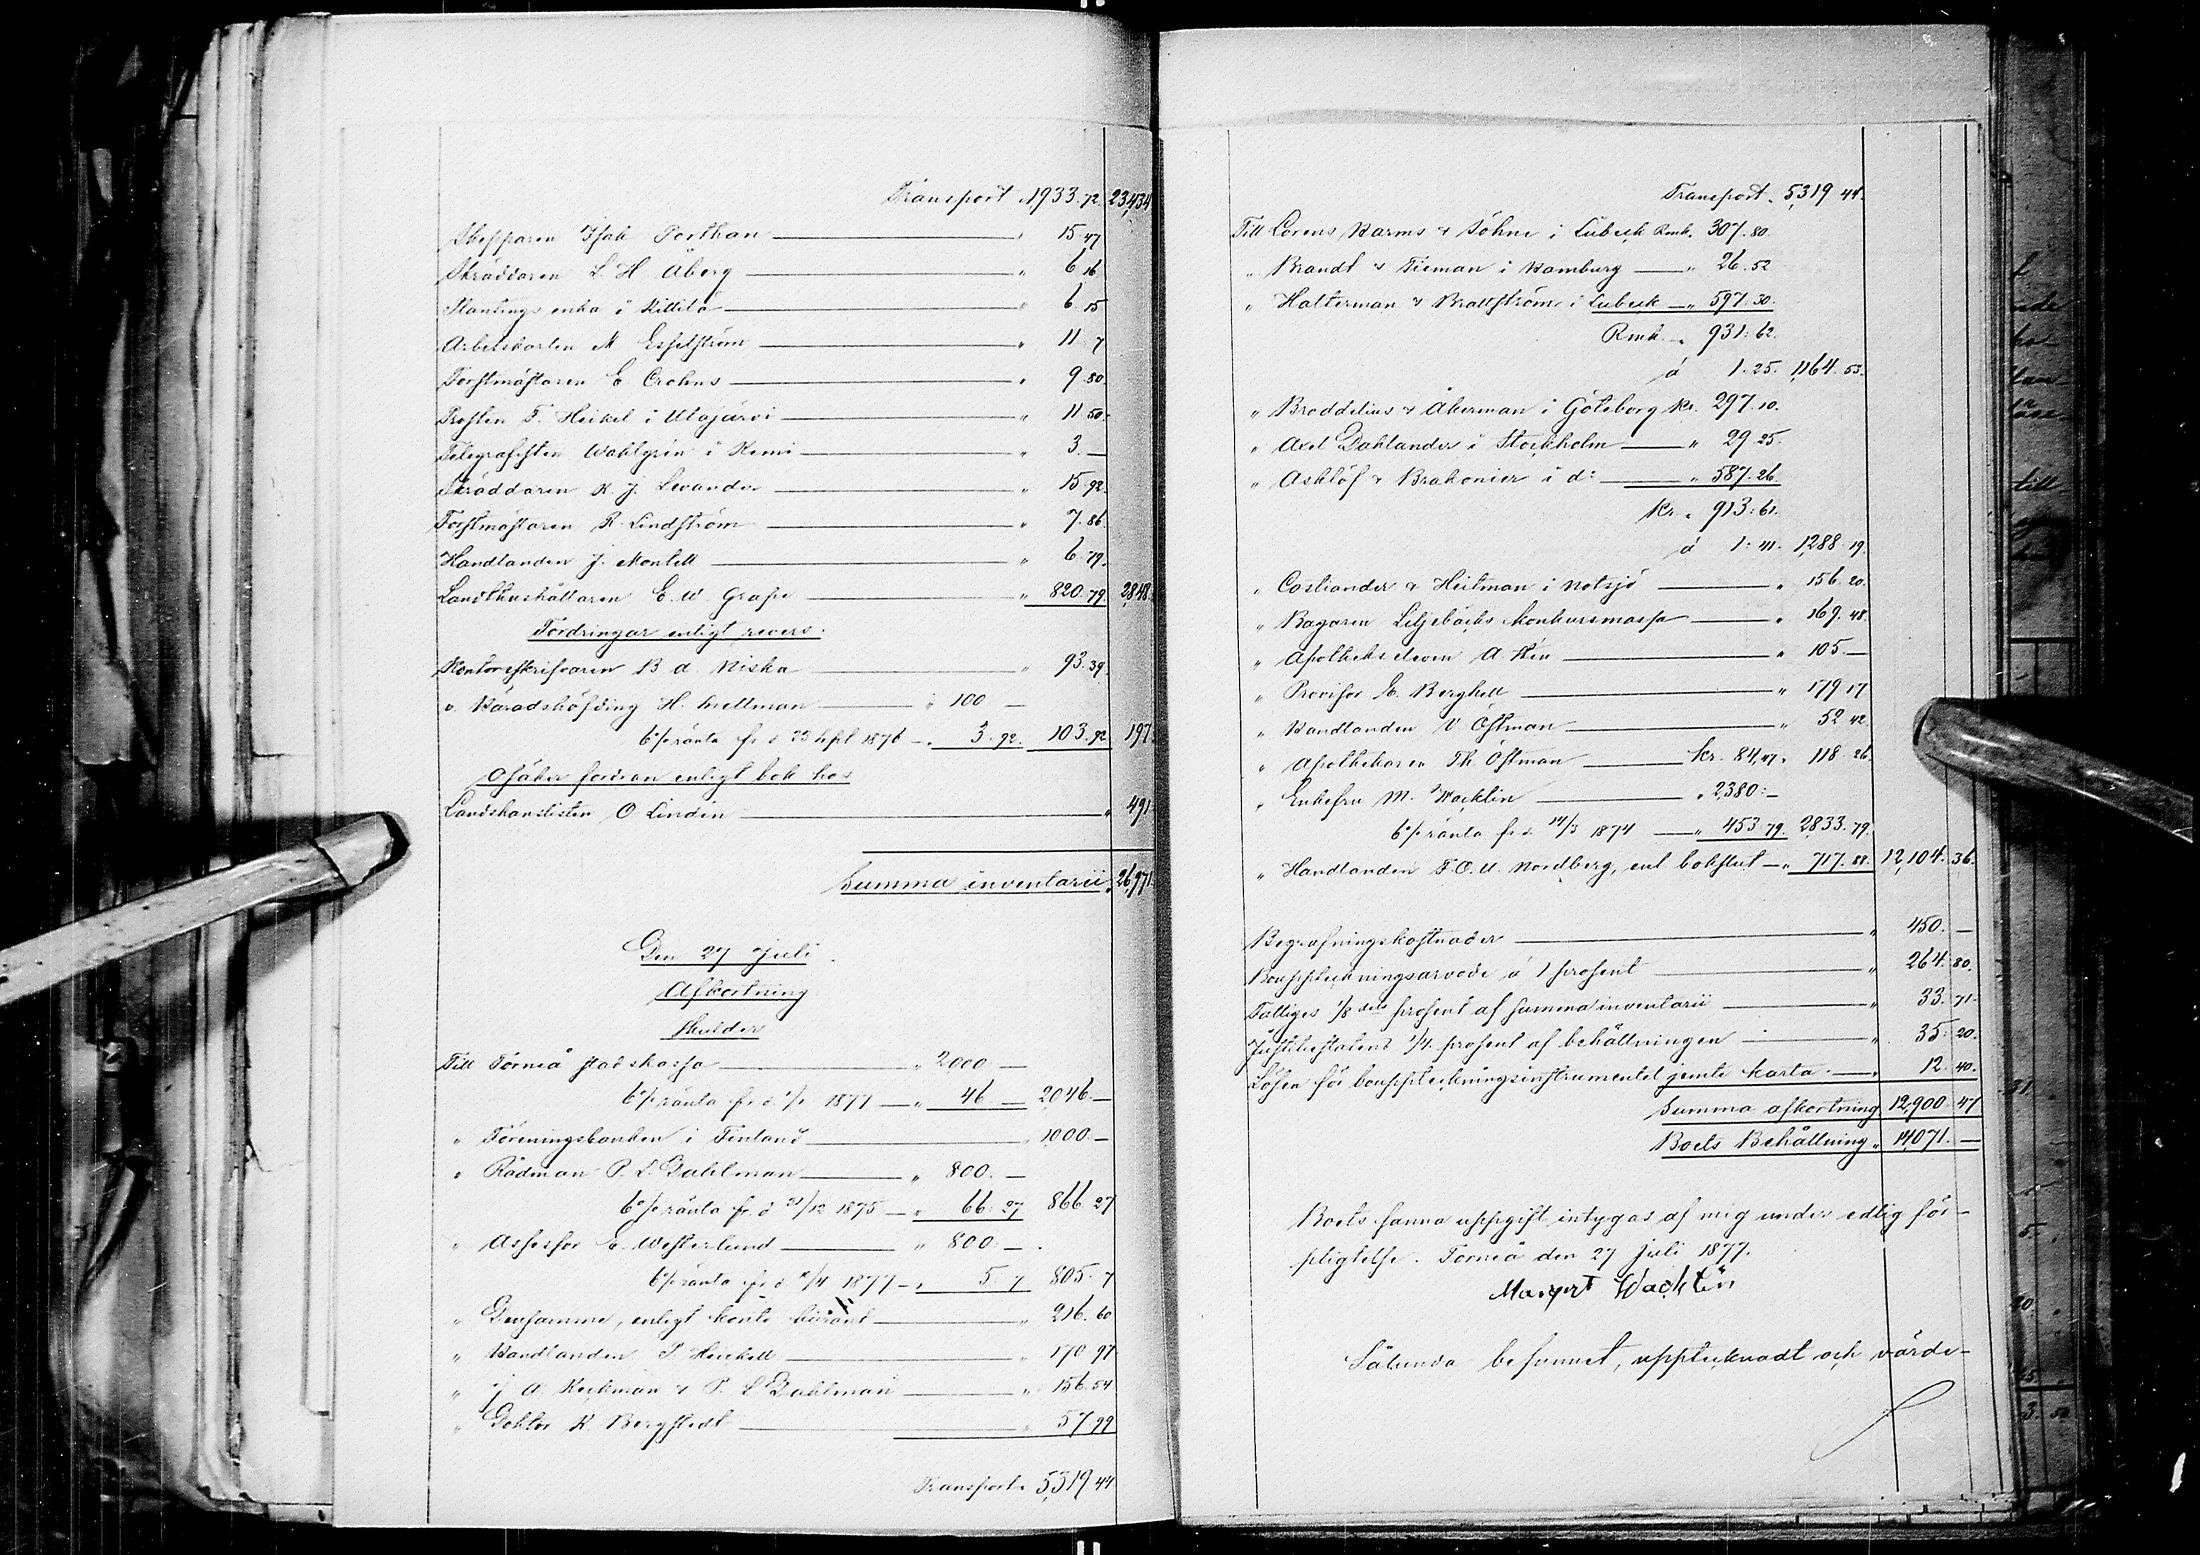 Transport „ 1933. 72. 23,434
Skepparen Isak Porthan „ 15. 47
Skräddaren L. H. Åberg „ 6. 16
enka i Kittilä „ 6. 15
Arbetskarlen M. Esselström „ 11. 7
Forstmästaren E. Crohns „ 9. 80.
Prosten F. Heikel i Utajärvi „ 11. 50.
Telegrafisten Wahlgrén i Kemi „ 3. —
Skräddaren K. J. Levander „ 15. 92.
Forstmästaren R. Lindström „ 7. 86.
Handlanden J. Montell „ 6. 79.
Landthushållaren E. W. Grape „ 820. 79. 2,848.
Fordringar enligt revers.
Kontorsskrifvaren B. A. Niska „ 93. 39.
v. Häradshöfding H. Mellman „ 100 —
6% ränta fr. d. 23 Sept 1876 „ 3. 92. 103. 92 197.
Osäker fordran enligt bok hos
Landskanslisten O. Lindén „ 491.
Summa inventarii „ 26,971.
Den 27 Juli.
Afkortning
Skulder
Till Torneå stadskassa „ 2000 —
6% ränta fr. d. 1877 „ 46 — 2,046. —
„ Föreningsbanken i Finland „ 1000. —
„ Rådman P. L. Dahlman „ 800. —
6% ränta fr. d. 31/12 1875 „ 66. 27 866. 27
„ Assessor E. Westerlund „ 800. —
6% ränta fr. d. /4 1877 „ 5. 7 805. 7
„ Densamme, enligt konto kurant „ 216. 60
„ Handlanden P. Heickell „ 170. 97
„ J. A. Keckman & P. L. Dahlman „ 156. 54
„ Doktor K. Bergstedt „ 57. 99
Transport „ 5,319 44
Transport „ 5,319 44.
Till Lorens Harms & Söhne i Lübeck Rmk. 307. 80
„ Brandt & Tieman i Hamburg „ 26. 52
„ Halterman & Brattström i Lübeck „ 597. 30.
Rmk „ 931: 62.
á 1. 25. 1,164. 53.
„ Broddelius & Åkerman i Göteborg Kr. 297. 10.
„ Axel Dahlander i Stockholm „ 29. 25.
„ Asklöf & Brakonier i d:o „ 587. 26
Kr. „ 913: 61.
á 1: 41. 1,288. 19.
„ Costiander & Heitman i Notsjö „ 156. 20.
„ Bagaren Liljebäcks konkursmassa „ 169. 48.
„ Apotheks eleven A. Hén „ 105. —
„ Provisor E. Berghell „ 179. 17
„ Handlanden V. Östman „ 52. 42.
„ Apothekaren Th. Östman Kr. 84,47. 118. 26
„ Enkefru M. Wacklin „ 2,380: —
6% ränta fr. d. 14/5 1874 „ 453. 79. 2,833. 79.
„ Handlanden F. O. U. Nordberg, enl. bokslut „ 717. 88. 12,104. 36.
Begrafningskostnader „ 450. —
Bouppteckningsarvode á 1 prosent „ 264. 80.
Fattiges 1/8 dels prosent af summa inventarii „ 33. 71.
Justitiestatens 1/4 prosent af behållningen „ 35. 20.
Lösen för bouppteckningsinstrumentet jemte karta „ 12. 40.
Summa afkortning 12,900. 47
Boets Behållning „ 14,071. —
Boets sanna uppgift intygas af mig under edlig för-
pligtelse. Torneå den 27 Juli 1877.
Margret Wacklin
Sålunda befunnet, upptecknadt och värde-